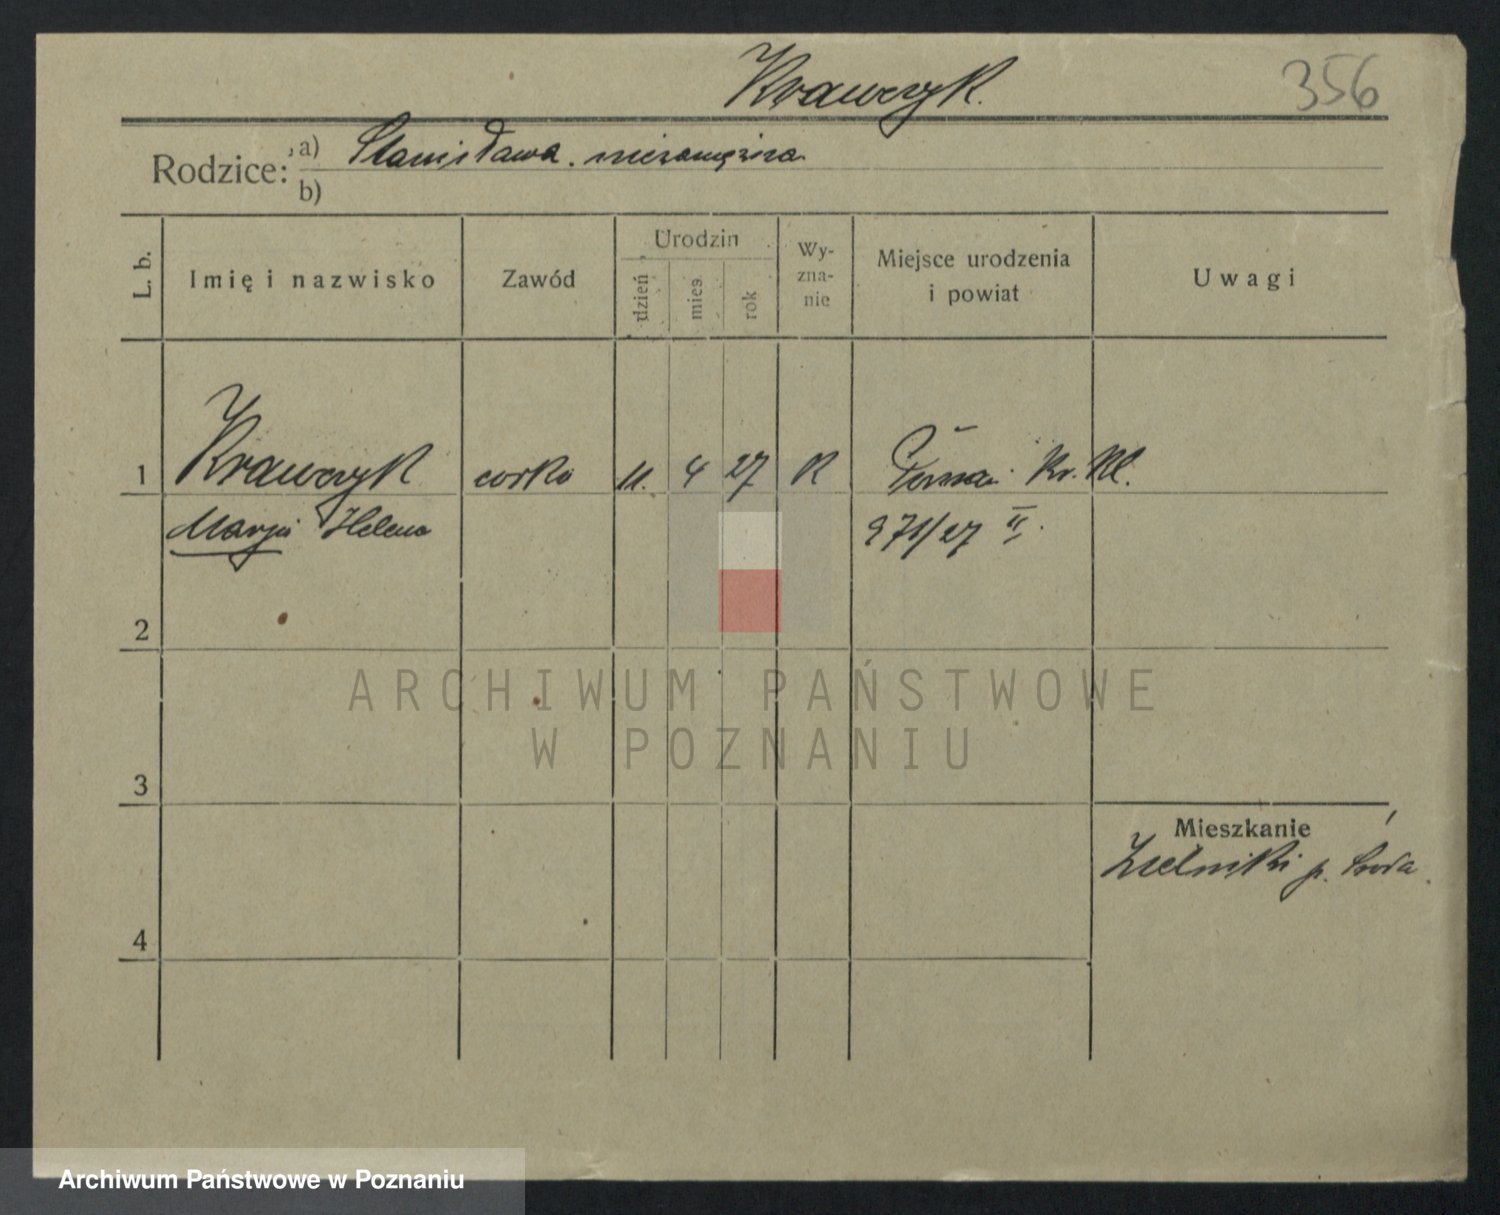 Krawczyk.
356
Rodzice: a) Stanisława. niezamężna
b)
L. b.
Imię i nazwisko
Zawód
Urodzin
dzień
mies
rok
Wy-
zna-
nie
Miejsce urodzenia
i powiat
Uwagi
1 Krawczyk córka 11. 4 27 K Poznań Kr. Kl.
Marja Helena 971/27 II.
2
ARCHIWUM PAŃSTWOWE
W POZNANIU
3
Mieszkanie
Zielniki p. Środa.
4
Archiwum Państwowe w Poznaniu